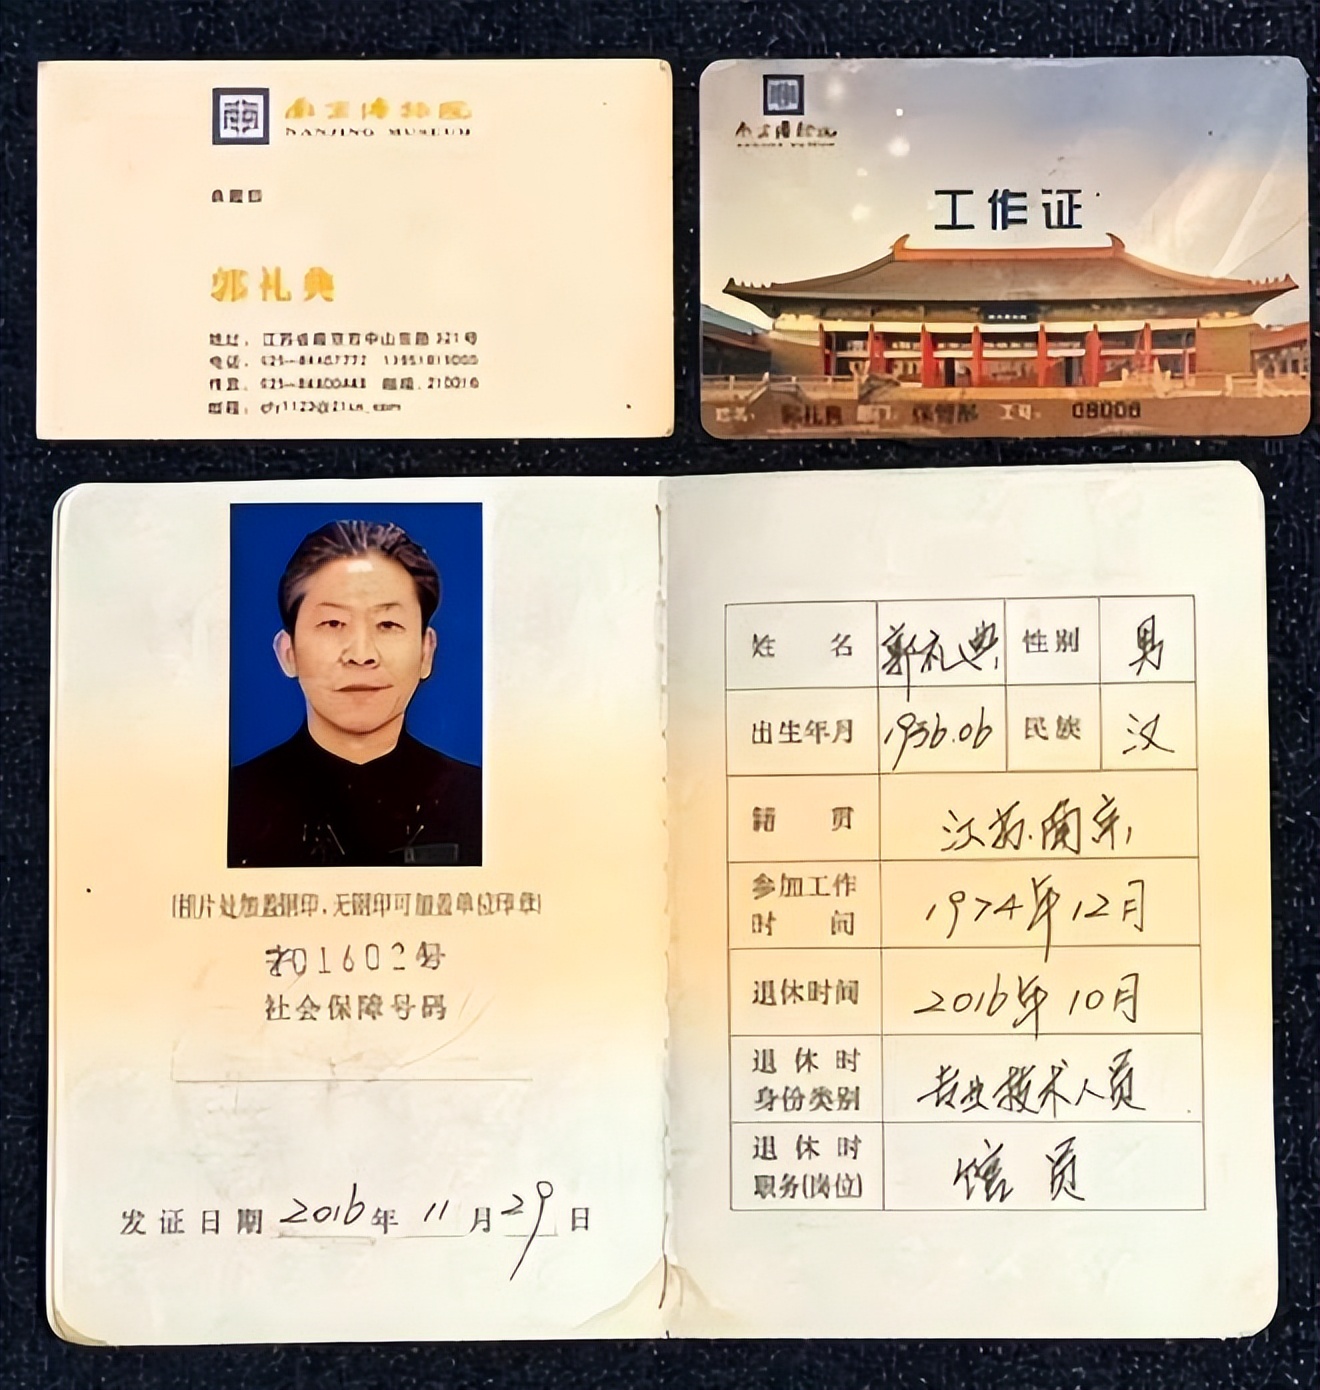 南京博物院
NANJING MUSEUM
典藏部
郭礼典
地址：江苏省南京市中山东路321号
电话：
传真： 邮编：210016
邮箱：
南京博物院
工作证
姓名：郭礼典 部门：保管部 工号：08008
(相片处加盖钢印，无钢印可加盖单位印章)
号
社会保障号码
发证日期 2016年 11月 29日
姓 名 郭礼典 性别 男
出生年月 1956.06 民族 汉
籍 贯 江苏南京
参加工作时 间 1974年12月
退休时间 2016年10月
退休时身份类别 专业技术人员
退休时职务(岗位) 馆员